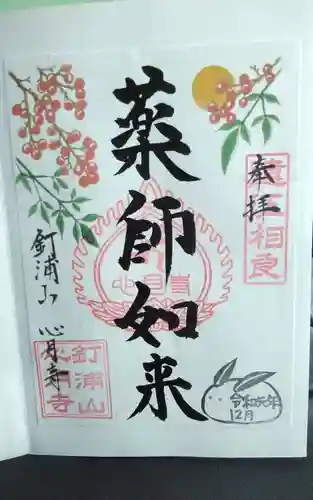 奉拝
薬師如来
釘浦山 心月寺
釘浦山
心月寺
令和元年
12月